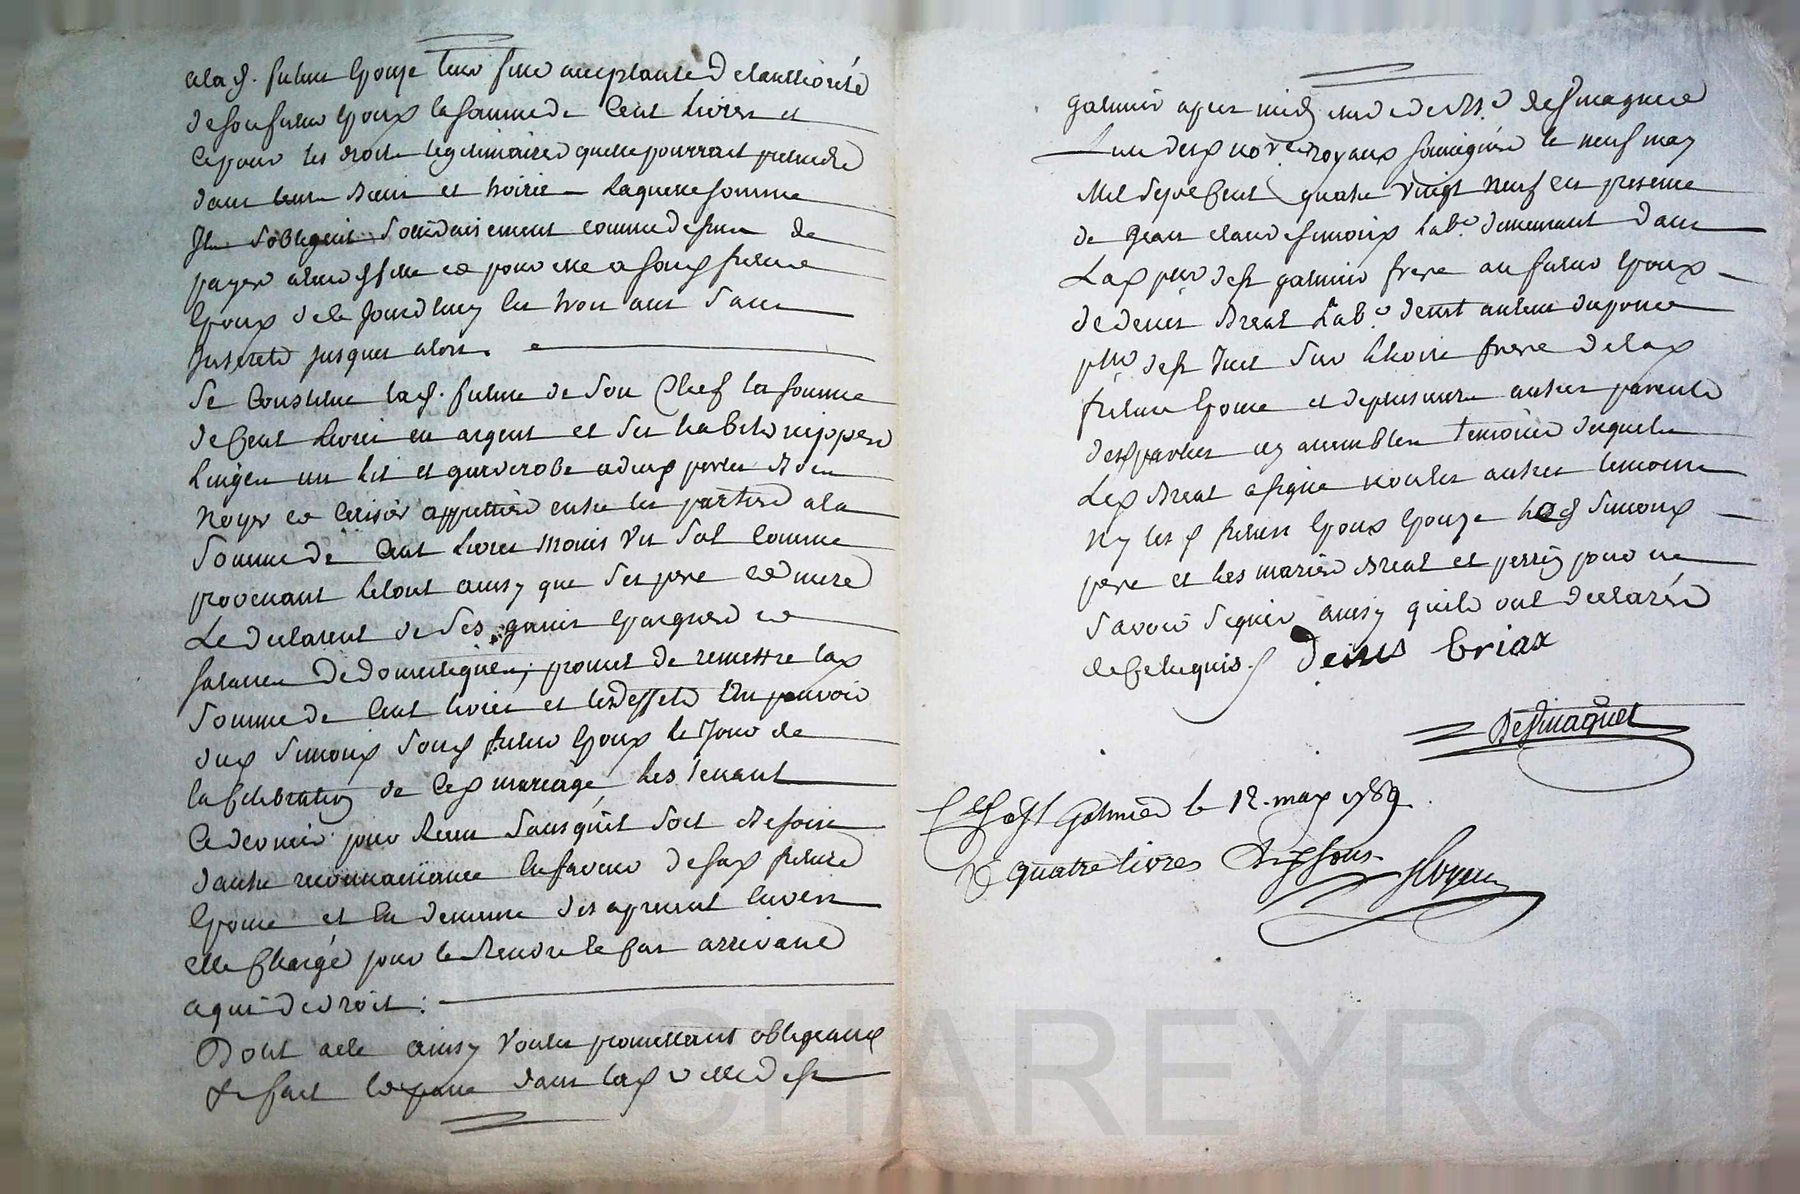 a lad. future Epouse leur fille acceptante et authorisée
de son futur Epoux la somme de Cent Livres et
ce pour les droits legitimaires quelle pourroit pretendre
dans leurs Biens et hoirie laquelle somme
Ils s'obligent Solidairement comme dessus de
payer a lad fille ce pour elle a sond futur
Epoux de ce jourd'huy en trois ans Sans
Interets jusques alors.
Se Constitue lad. future de Son Chef la somme
de Cent Livres en argent et Ses habits nippes
Linges un lit et garderobe a deux portes Bois
Noyer et Cerisier appretiés entre les parties a la
Somme de Cent Livres Moins Un Sol Comme
provenant le tout ainsy que Ses pere et mere
Le declarent de Ses gains Epargnes et
Salaires De domestique; promet de remettre lad
Somme de Cent livres et lesd effets Au pouvoir
dud Simond Sond futur Epoux le Jour de
la Celebration de Ced mariage Les tenant
Ce dernier pour Reçeu Sans qu'il soit Besoin
d'autre reconnaissance En faveur de sad future
Epouse et En demeure des apresent Envers
elle Chargé pour le Rendre le Cas arrivant
a qui De droit :
Dont acte ainsy Voulu promettant obligeant
& fait Et passé dans lad Ville de St
galmier apres midy etude de Me Desmagniet
L'un des nores royaux soussigné le neuf may
Mil Sept Cent quatre Vingt Neuf en presence
de Jean claude Simond Labr. demeurant dans
Lad psse de St galmier frere au futur Epoux
de denis Breat Labr.
psse de St Just Sur Loire frere de lad
future Epouse et de plusieurs autres parents
desd parties cy assemblés temoins desquels
Led Breat a signé non les autres temoins
Ny les d futurs Epoux Epouse led Simond
pere et Les mariés Breat et perrin pour ne
Savoir Signer ainsy quils ont declaré
de Ce Requis. denis briax
Desmagniet
Cllé a St Galmier le 12. may 1789.
R quatre livres dix sous
CHAREYRON